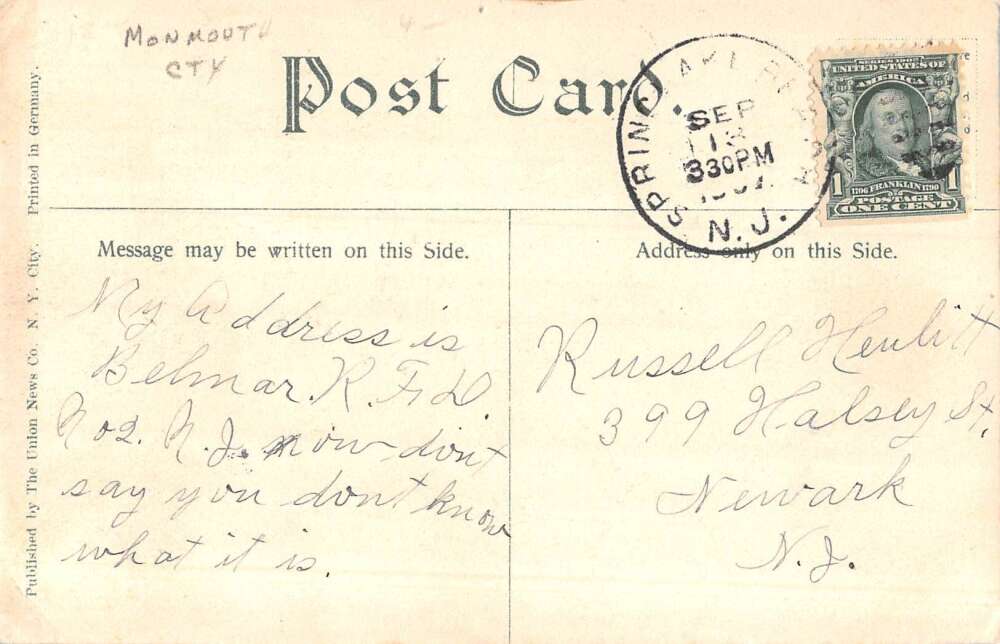 MONMOUTH
CTY
Post Card.
SPRING LAKE BEACH
SEP
13
330PM
1907
N.J.
SERIES 1902
UNITED STATES OF
AMERICA
1706 FRANKLIN 1790
1 POSTAGE 1
ONE CENT
Printed in Germany.
Published by The Union News Co. N. Y. City.
Message may be written on this Side.
My Address is
Belmar. R. F. D.
No2. N. J. now dont
say you dont know
what it is.
Address only on this Side.
Russell
399 Halsey St,
Newark
N.J.